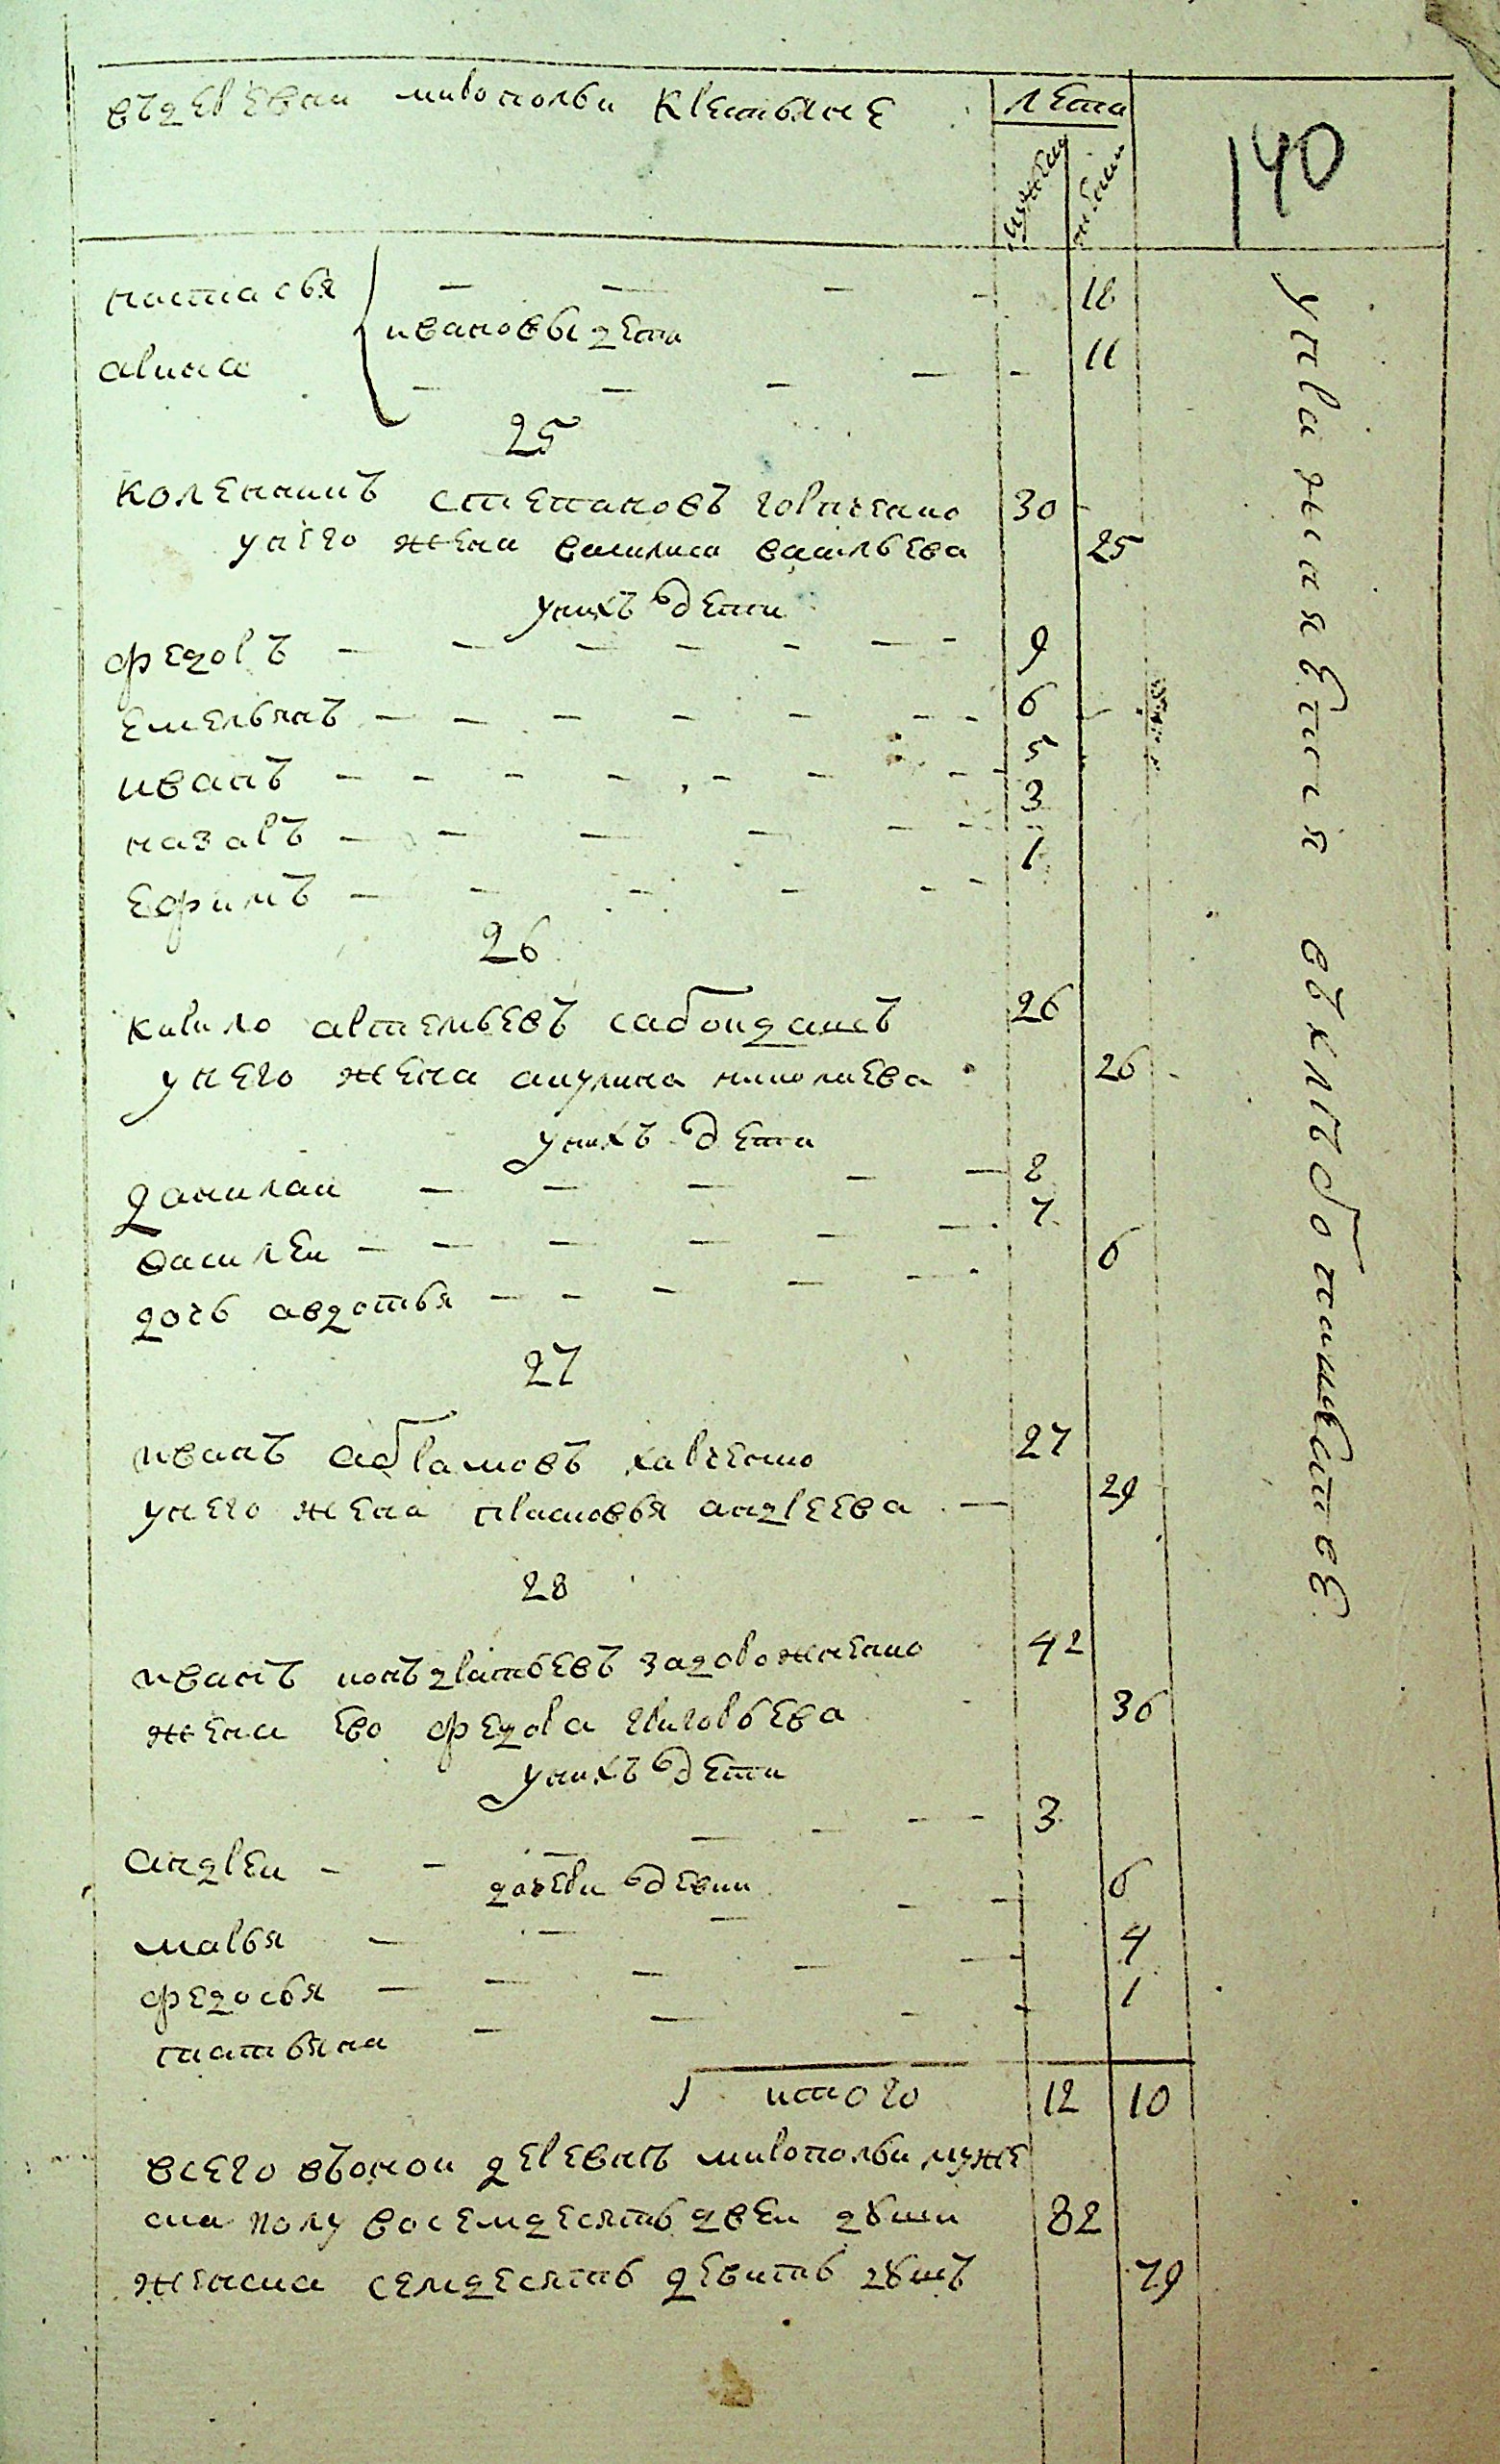 въдеревни миропольи крестьяне
лета
мужеска
женска
140
настасья
ивановы дети
18
арина
11
25
колениикъ степановъ горпченко 30
унего жена василиса васильева 25
унихъ дети
федоръ 9
емельянъ 6
иванъ 5
назаръ 3
ефимъ 1
26
кирило артемьевъ сабондашъ 26
унего жена акулина николаева 26
унихъ дети
данилаи 8
василеи 7
дочь авдотья 6
27
иванъ абрамовъ харченко 27
унего жена прасковья андреева 29
28
иванъ кондратьевъ задорожненко 42
жена ево федора григорьева 36
унихъ дети
андреи 3
дочери девки
марья 6
федосья 4
татьяна 1
итого 12 10
всего въонои деревнъ миропольи муже
ска полу восемдесятъ двеи души 82
женска семдесятъ девить душъ 79